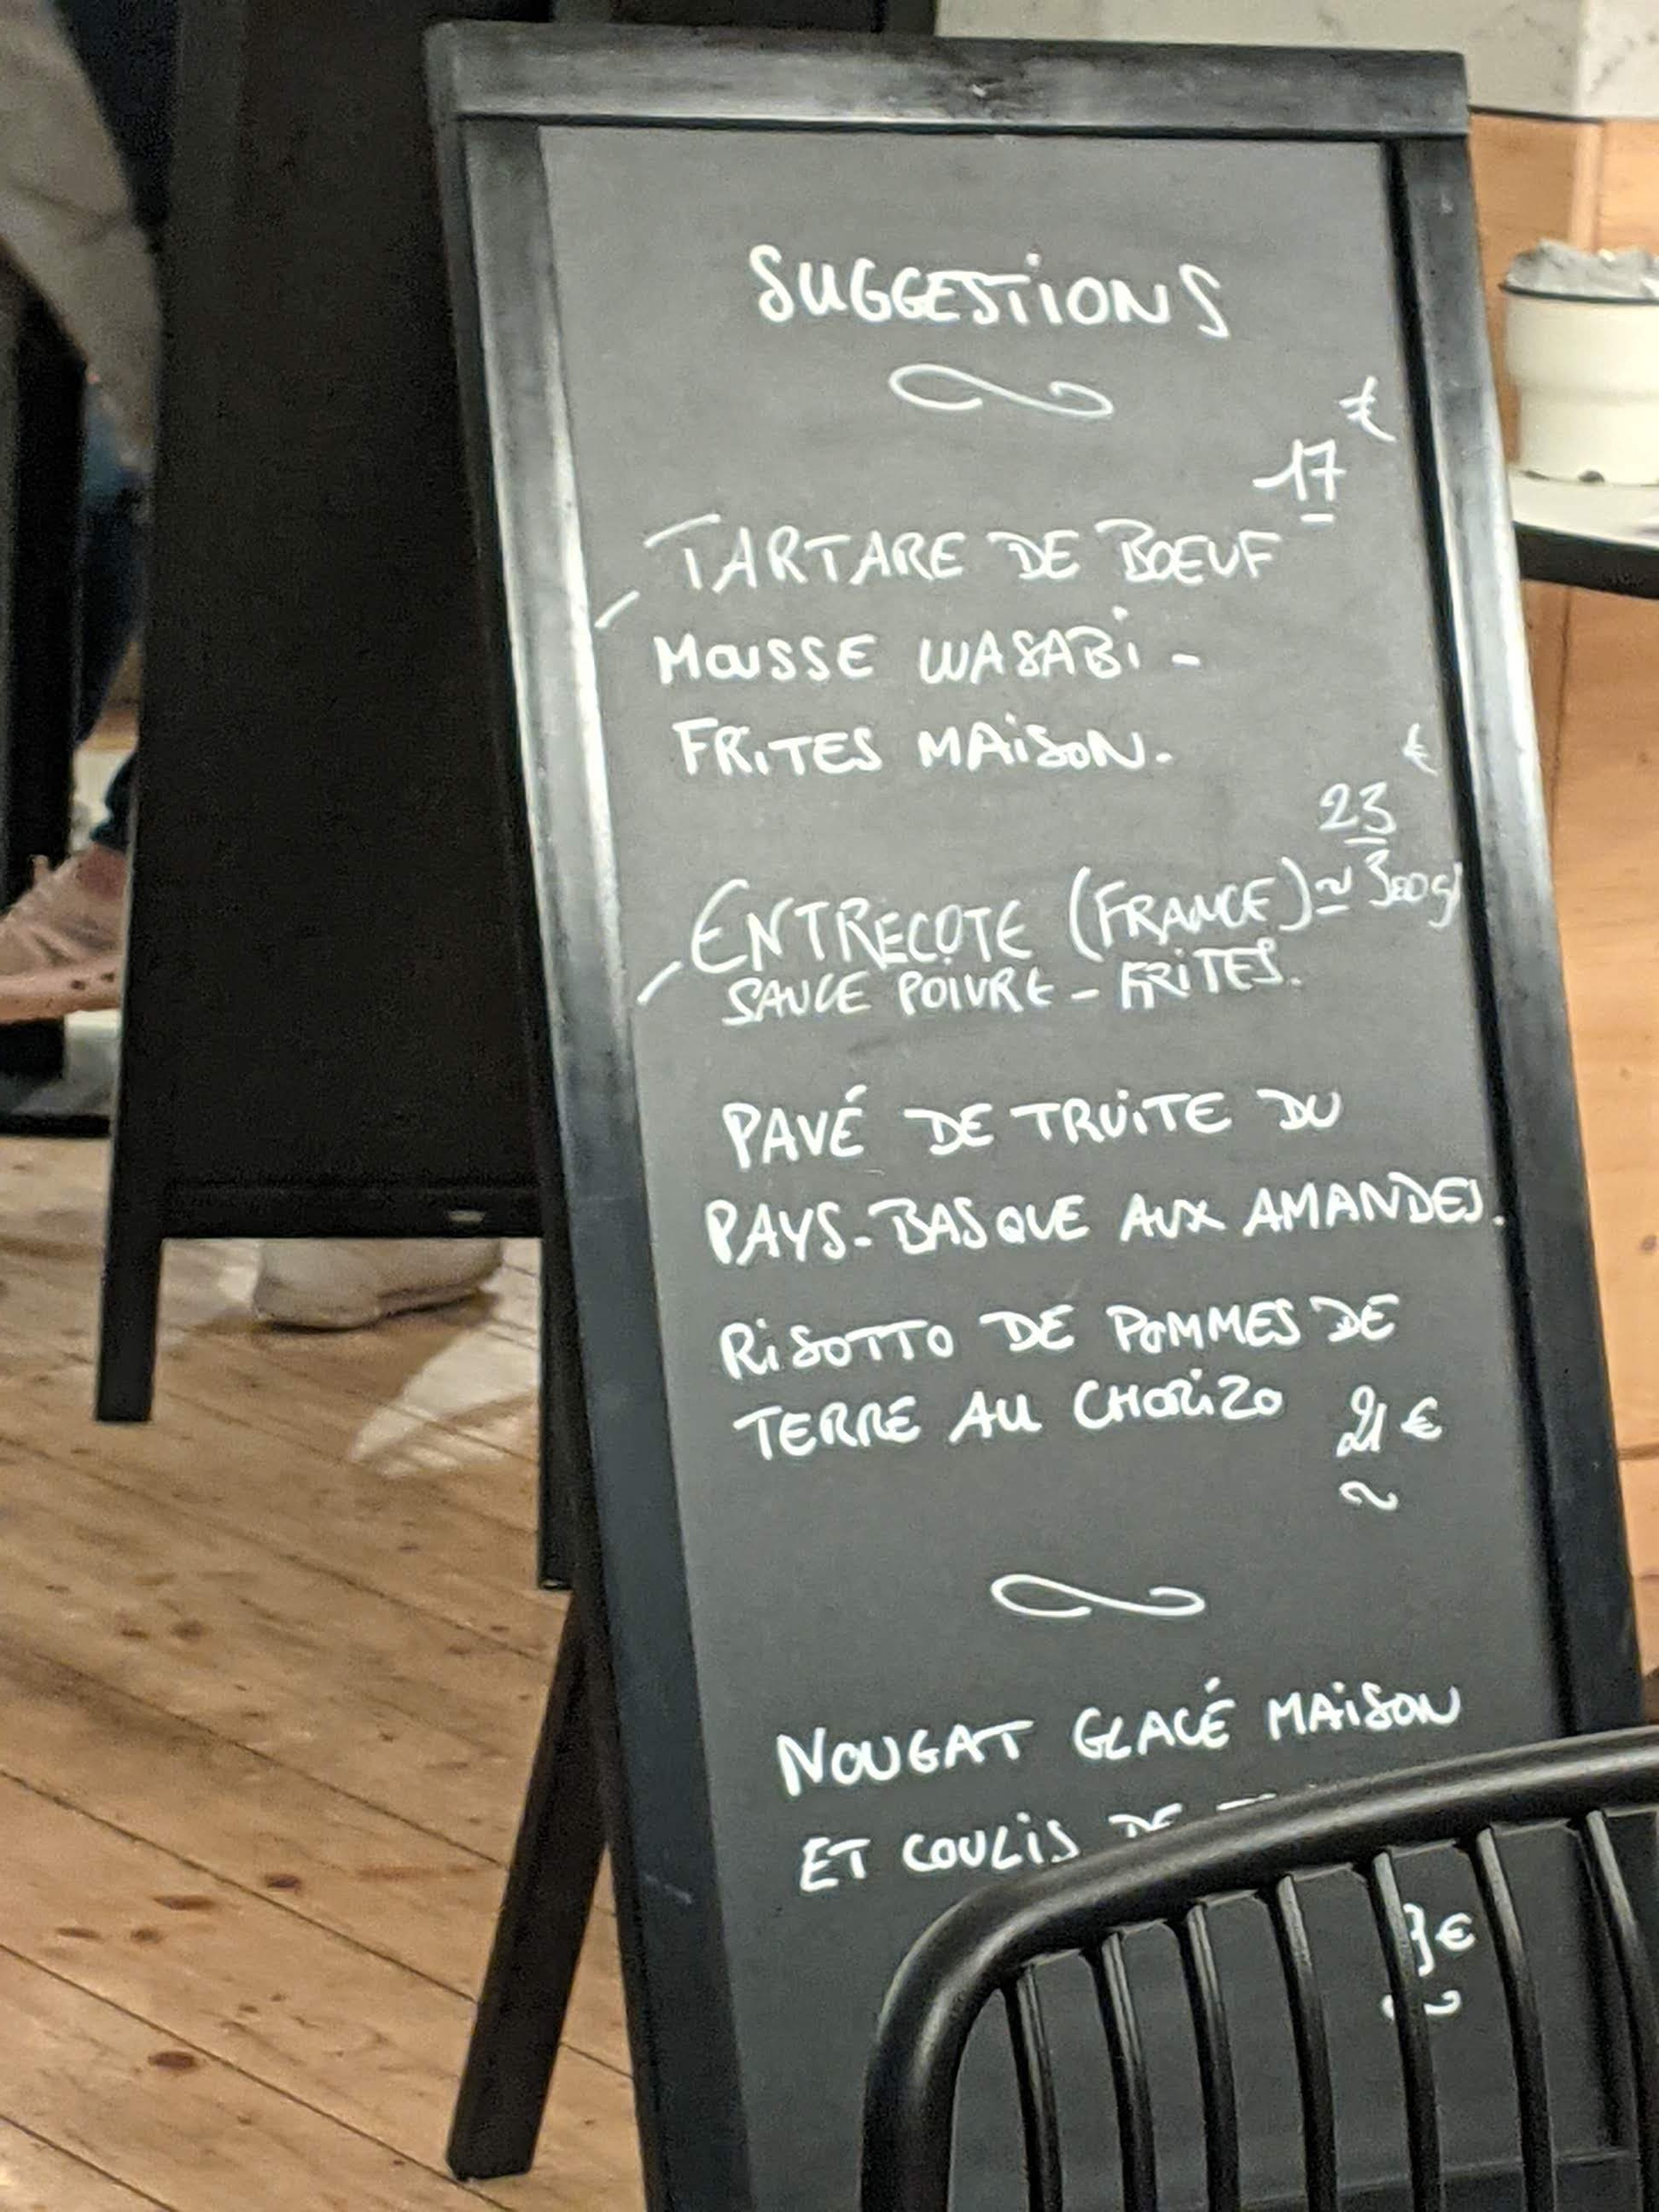 SUGGESTIONS
17 €
TARTARE DE BOEUF
MOUSSE WASABI -
FRITES MAISON.
23 €
ENTRECOTE (FRANCE) ~ 300g
SAUCE POIVRE - FRITES.
PAVÉ DE TRUITE DU
PAYS-BASQUE AUX AMANDES.
RISOTTO DE POMMES DE
TERRE AU CHORIZO 21 €
NOUGAT GLACÉ MAISON
ET COULIS DE
€